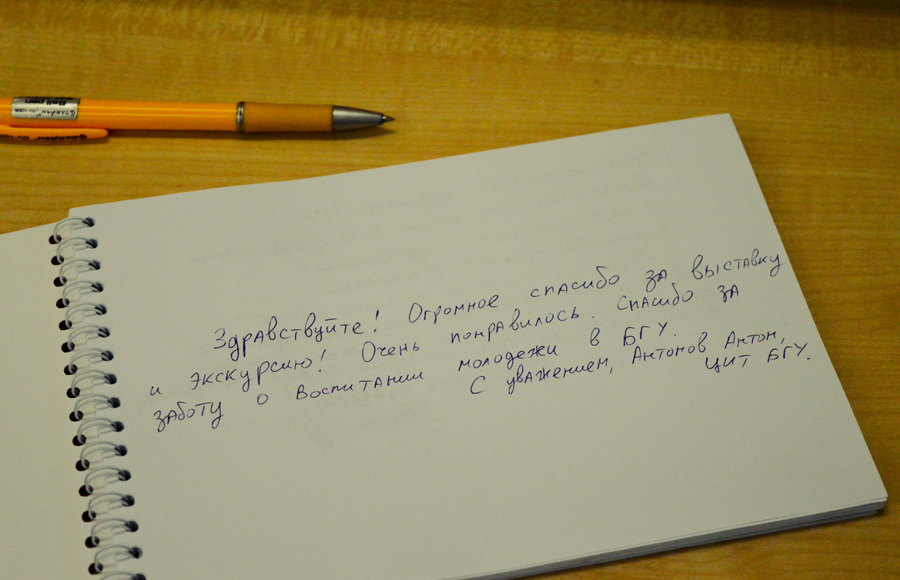 Ball pen
Здравствуйте! Огромное спасибо за выставку
и экскурсию! Очень понравилось. Спасибо за
заботу о воспитании молодежи в БГУ.
С уважением, Антонов Антон,
ЦИТ БГУ.